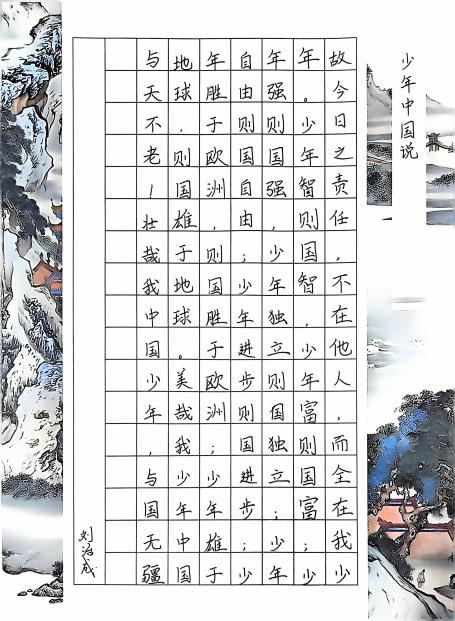 少年中国说
故今日之责任，不在他人，而全在我少
年。少年智则国智，少年富则国富；少
年强则国强，少年独立则国独立；少年
自由则国自由；少年进步则国进步；少
年胜于欧洲，则国胜于欧洲；少年雄于
地球，则国雄于地球。美哉我少年中国
与天不老！壮哉我中国少年，与国无疆